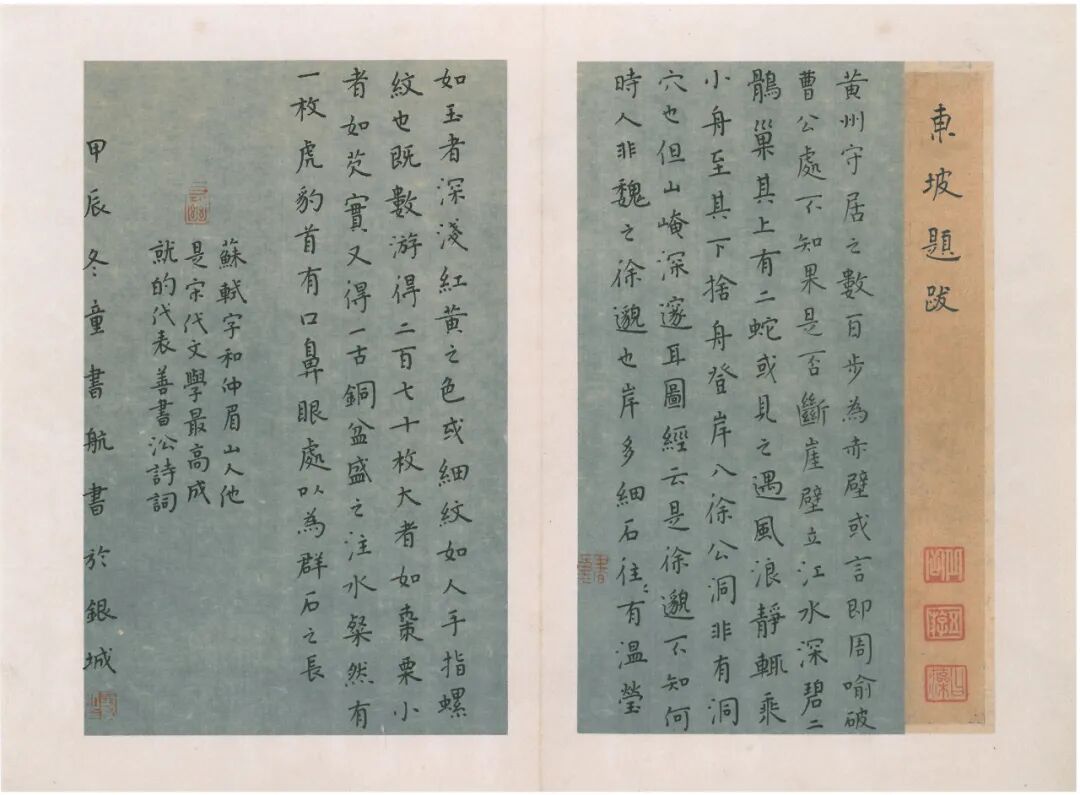 東坡題跋
黄州守居之數百步為赤壁或言即周喻破
曹公處不知果是否斷崖壁立江水深碧二
鶻巢其上有二蛇或見之遇風浪靜輒乘
小舟至其下捨舟登岸入徐公洞非有洞
穴也但山崦深邃耳圖經云是徐邈不知何
時人非魏之徐邈也岸多細石往〻有温瑩
如玉者深淺紅黄之色或細紋如人手指螺
紋也既數游得二百七十枚大者如棗栗小
者如芡實又得一古銅盆盛之注水粲然有
一枚虎豹首有口鼻眼處以為群石之長
蘇軾字和仲眉山人他
是宋代文學最高成
就的代表善書法詩詞
甲辰冬童書航書於銀城